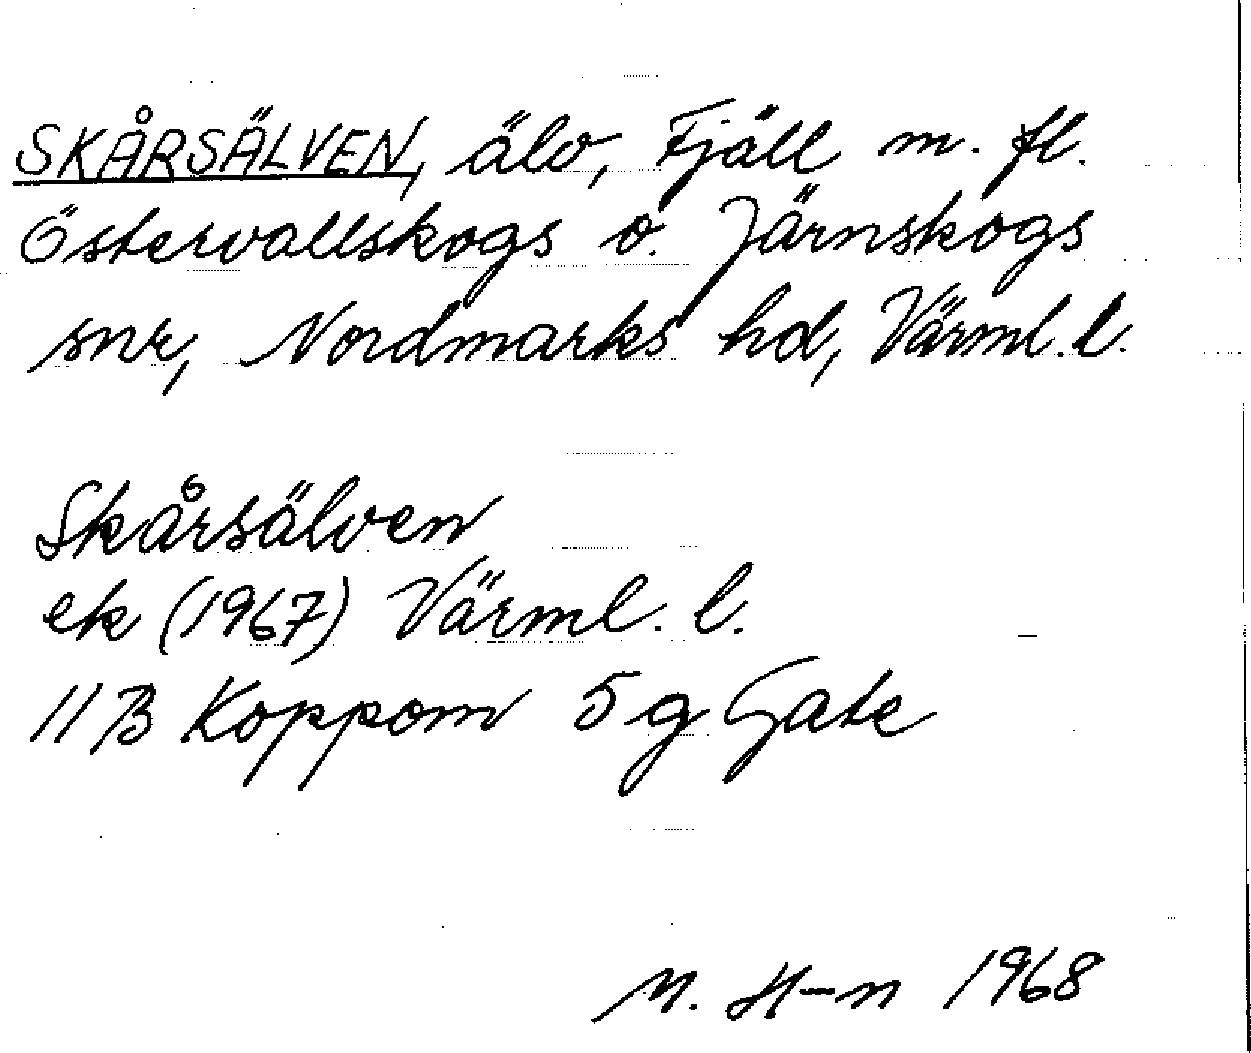 SKÅRSÄLVEN, älv, Fjäll m. fl.
Östervallskogs o. Järnskogs
snr, Nordmarks hd, Värml. l.
Skårsälven
ek (1967) Värml. l.
11 B Koppom 5 g Gate
M. H-n 1968